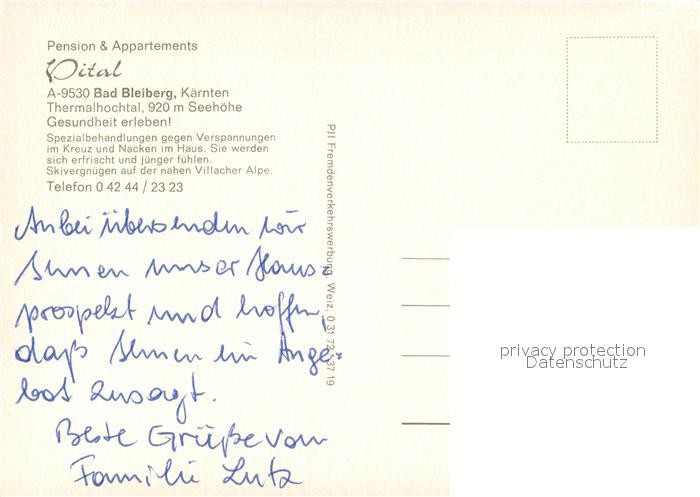 Pension & Appartements
Vital
A-9530 Bad Bleiberg, Kärnten
Thermalhochtal, 920 m Seehöhe
Gesundheit erleben!
Spezialbehandlungen gegen Verspannungen
im Kreuz und Nacken im Haus. Sie werden
sich erfrischt und jünger fühlen.
Skivergnügen auf der nahen Villacher Alpe.
Telefon 0 42 44 / 23 23
Anbei übersenden wir
Ihnen unser Haus=
prospekt und hoffen,
daß Ihnen ein Ange=
bot zusagt.
Beste Grüße von
Familie Lutz
PJI Fremdenverkehrswerbung, Weiz, 0 31 72 / 37 19
privacy protection
Datenschutz